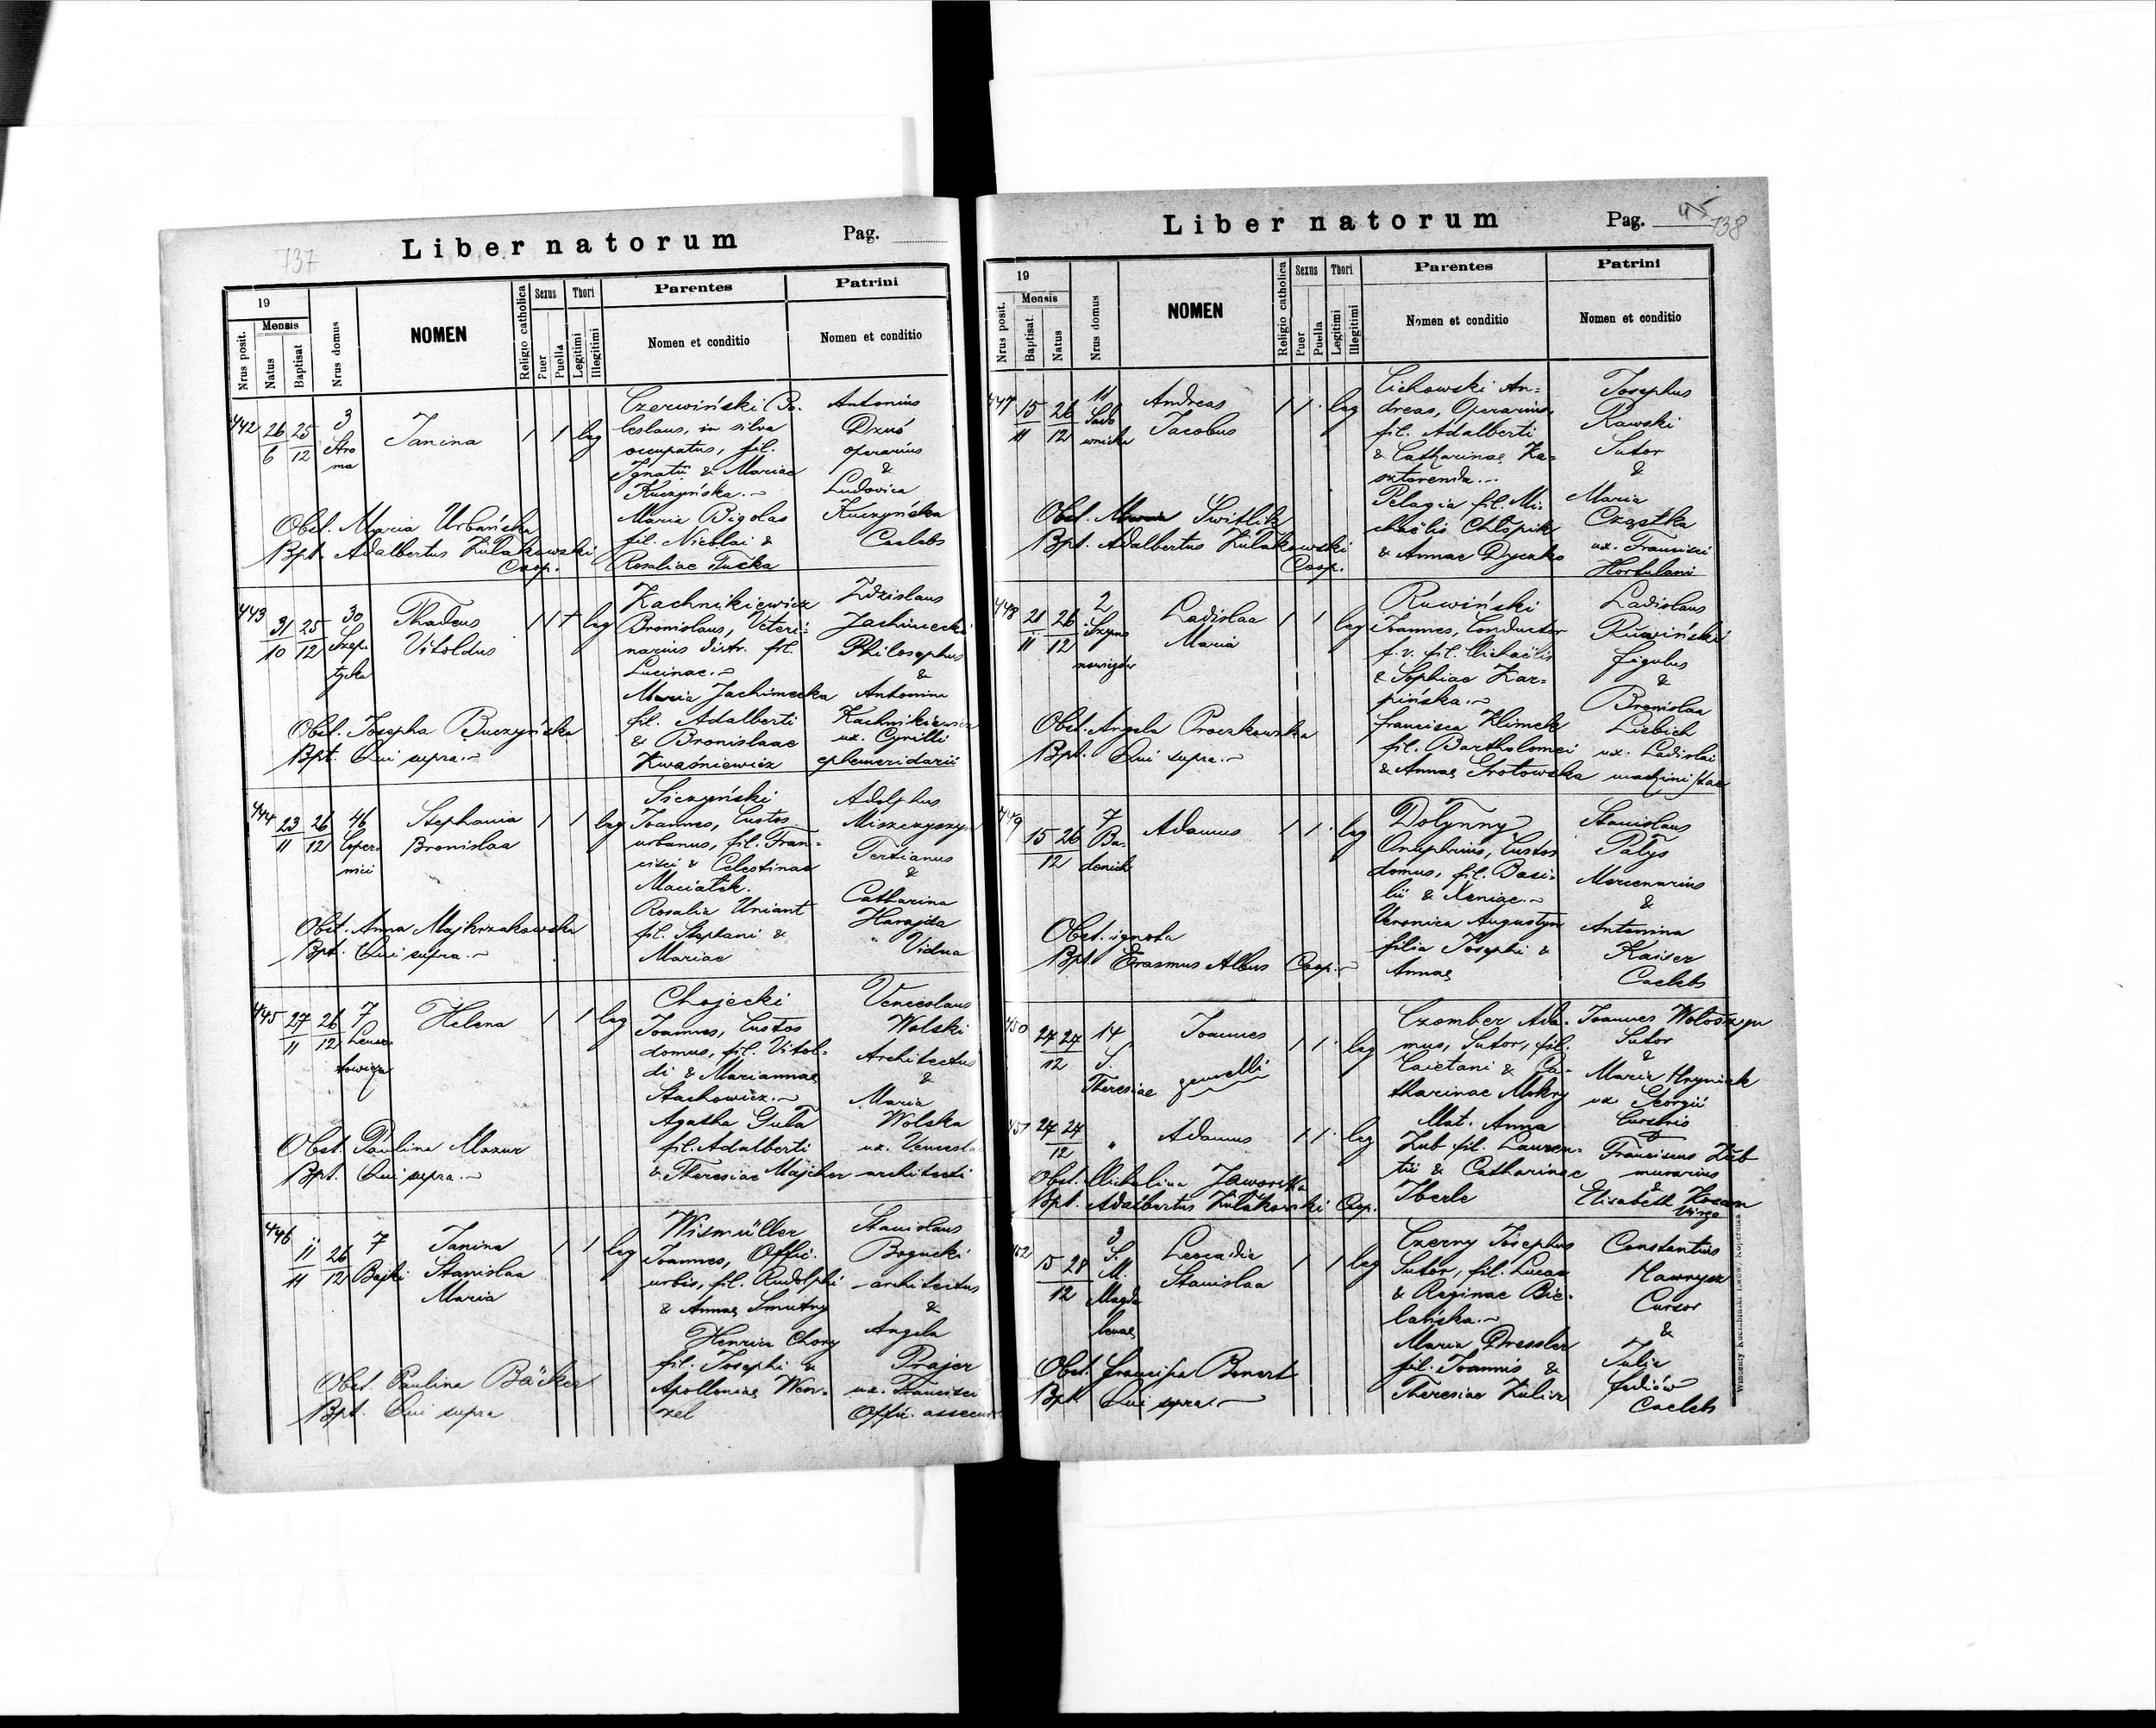 737
Liber natorum
Pag.
19
Mensis
Nrus posit.
Natus
Baptisat
Nrus domus
NOMEN
Religio catholica
Sexus
Puer
Puella
Thori
Legitimi
Illegitimi
Parentes
Nomen et conditio
Patrini
Nomen et conditio
442
26/6
25/12
3
Stro
ma
Janina
1 1 leg
Czerwiński Bo-
leslaus, in silva
occupatus, fil.
Ignatii & Mariae
Kuczyńska.~
Maria Bigolas
fil. Nicolai &
Rosaliae Tucka
Antonius
operarius
&
Ludovica
Kuczyńska
Caelebs
Obst. Maria Urbańska
Bpt. Adalbertus Żułakowski
Coop.
443
31/10
25/12
30
Szep-
tycka
Thadeus
Vitoldus
1 1 + leg
Kachnikiewicz
Bronislaus, Veteri-
narius distr. fil.
Lucinae.~
Maria Jachimecka
fil. Adalberti
& Bronislaae
Kwaśniewicz
Zdzislaus
Jachimecki
Philosophus
&
Antonina
Kachnikiewicz
ux. Cyrilli
ephemeridarii
Obst. Josepha Buczyńska
Bpt. Qui supra.~
444
23/11
26/12
46
Coper-
nici
Stephania
Bronislaa
1 1 leg
Siczyński
Joannes, Custos
urbanus, fil. Fran-
cisci & Celestinae
Maciatek.
Rosalia Uniant
fil. Stephani &
Mariae
Adolphus
Miszczyszyn
Tertianus
&
Catharina
Harajda
Vidua
Obst. Anna Majkrzakowska
Bpt. Qui supra.~
445
27/11
26/12
7
Lenar-
towicza
Helena
1 1 leg
Chojecki
Joannes, Custos
domus, fil. Vitol-
di & Mariannae
Stachowicz.~
Agatha Guła
fil. Adalberti
& Theresiae Majcher
Venceslaus
Wolski
Architectus
&
Maria
Wolska
ux. Vencesla
architecti
Obst. Paulina Mazur
Bpt. Qui supra.~
446
11/11
26/12
7
Bajki
Janina
Stanislaa
Maria
1 1 leg
Wismüller
Joannes, Offic.
urbis, fil. Rudolphi
& Annae Smutny
Henrica Chory
fil. Josephi &
Apolloniae Wen-
zel
Stanislaus
Bogucki
architectus
&
Angela
Prajer
ux. Francisci
Offic. assecur
Obst. Paulina Bäcker
Bpt. Qui supra
Liber natorum
Pag. 738
19
Mensis
Nrus posit.
Baptisat.
Natus
Nrus domus
NOMEN
Religio catholica
Sexus
Puer
Puella
Thori
Legitimi
Illegitimi
Parentes
Nomen et conditio
Patrini
Nomen et conditio
447
15/11
26/12
11
Sado
wnicka
Andreas
Jacobus
1 1 leg
Cichowski An-
dreas, Operarius
fil. Adalberti
& Catharinae Ka-
Pelagia fil. Mi-
chaëlis Chłopik
& Annae Dyczko
Josephus
Rawski
Sutor
&
Maria
Cząstka
ux. Francisci
Hortulani
Obst. Switlik
Bpt. Adalbertus Żułakowski
Coop.
448
21/11
26/12
2
Szymo
nowiczów
Ladislaa
Maria
1 1 leg
Ruwiński
Joannes, Conductor
f. v. fil. Michaëlis
& Sophiae Kar-
pińska.~
Francisca Klimek
fil. Bartholomei
& Annae Grotowska
Ladislaus
Ruwiński
figulus
&
Bronislaa
Liebich
ux. Ladislai
machinistae
Obst. Angela Proczkowska
Bpt. Qui supra.~
449
15 26
12
7
Ba-
denich
Adamus
1 1 leg
Dolynny
Onuphrius, Custos
domus, fil. Basi-
lii & Xeniae.~
Veronica Augustyn
filia Josephi &
Annae
Stanislaus
Patys
Mercenarius
&
Antonina
Kaiser
Caelebs
Obst. ignota
Bpt. Erasmus Albus Coop.~
450
27 27
12
14
S.
Theresiae
Joannes
gemelli
1 1 leg
Czomber Ada-
mus, Sutor, fil.
Caietani & Ca-
tharinae Mokry
Mat. Anna
Żub fil. Lauren-
tii & Catharinae
Iberle
Joannes Wołoszyn
Sutor
&
Maria Hryniak
ux. Georgii
Cursoris
451
27 27
12
"
Adamus
1 1 leg
Franciscus Żub
murarius
&
Elisabeth
Virgo
Obst. Michalina Jaworska
Bpt. Adalbertus Żułakowski Coop.
452
15 28
12
3
S.
M.
Magda
lenae
Leocadia
Stanislaa
1 1 leg
Czerny Josephus
Sutor, fil. Lucae
& Reginae Bie-
lańska.~
Maria Dressler
fil. Joannis &
Theresiae Zulir
Constantius
Hawrysz
Cursor
&
Julia
Fediów
Caelebs
Obst. Francisca Benert
Bpt. Qui supra.~